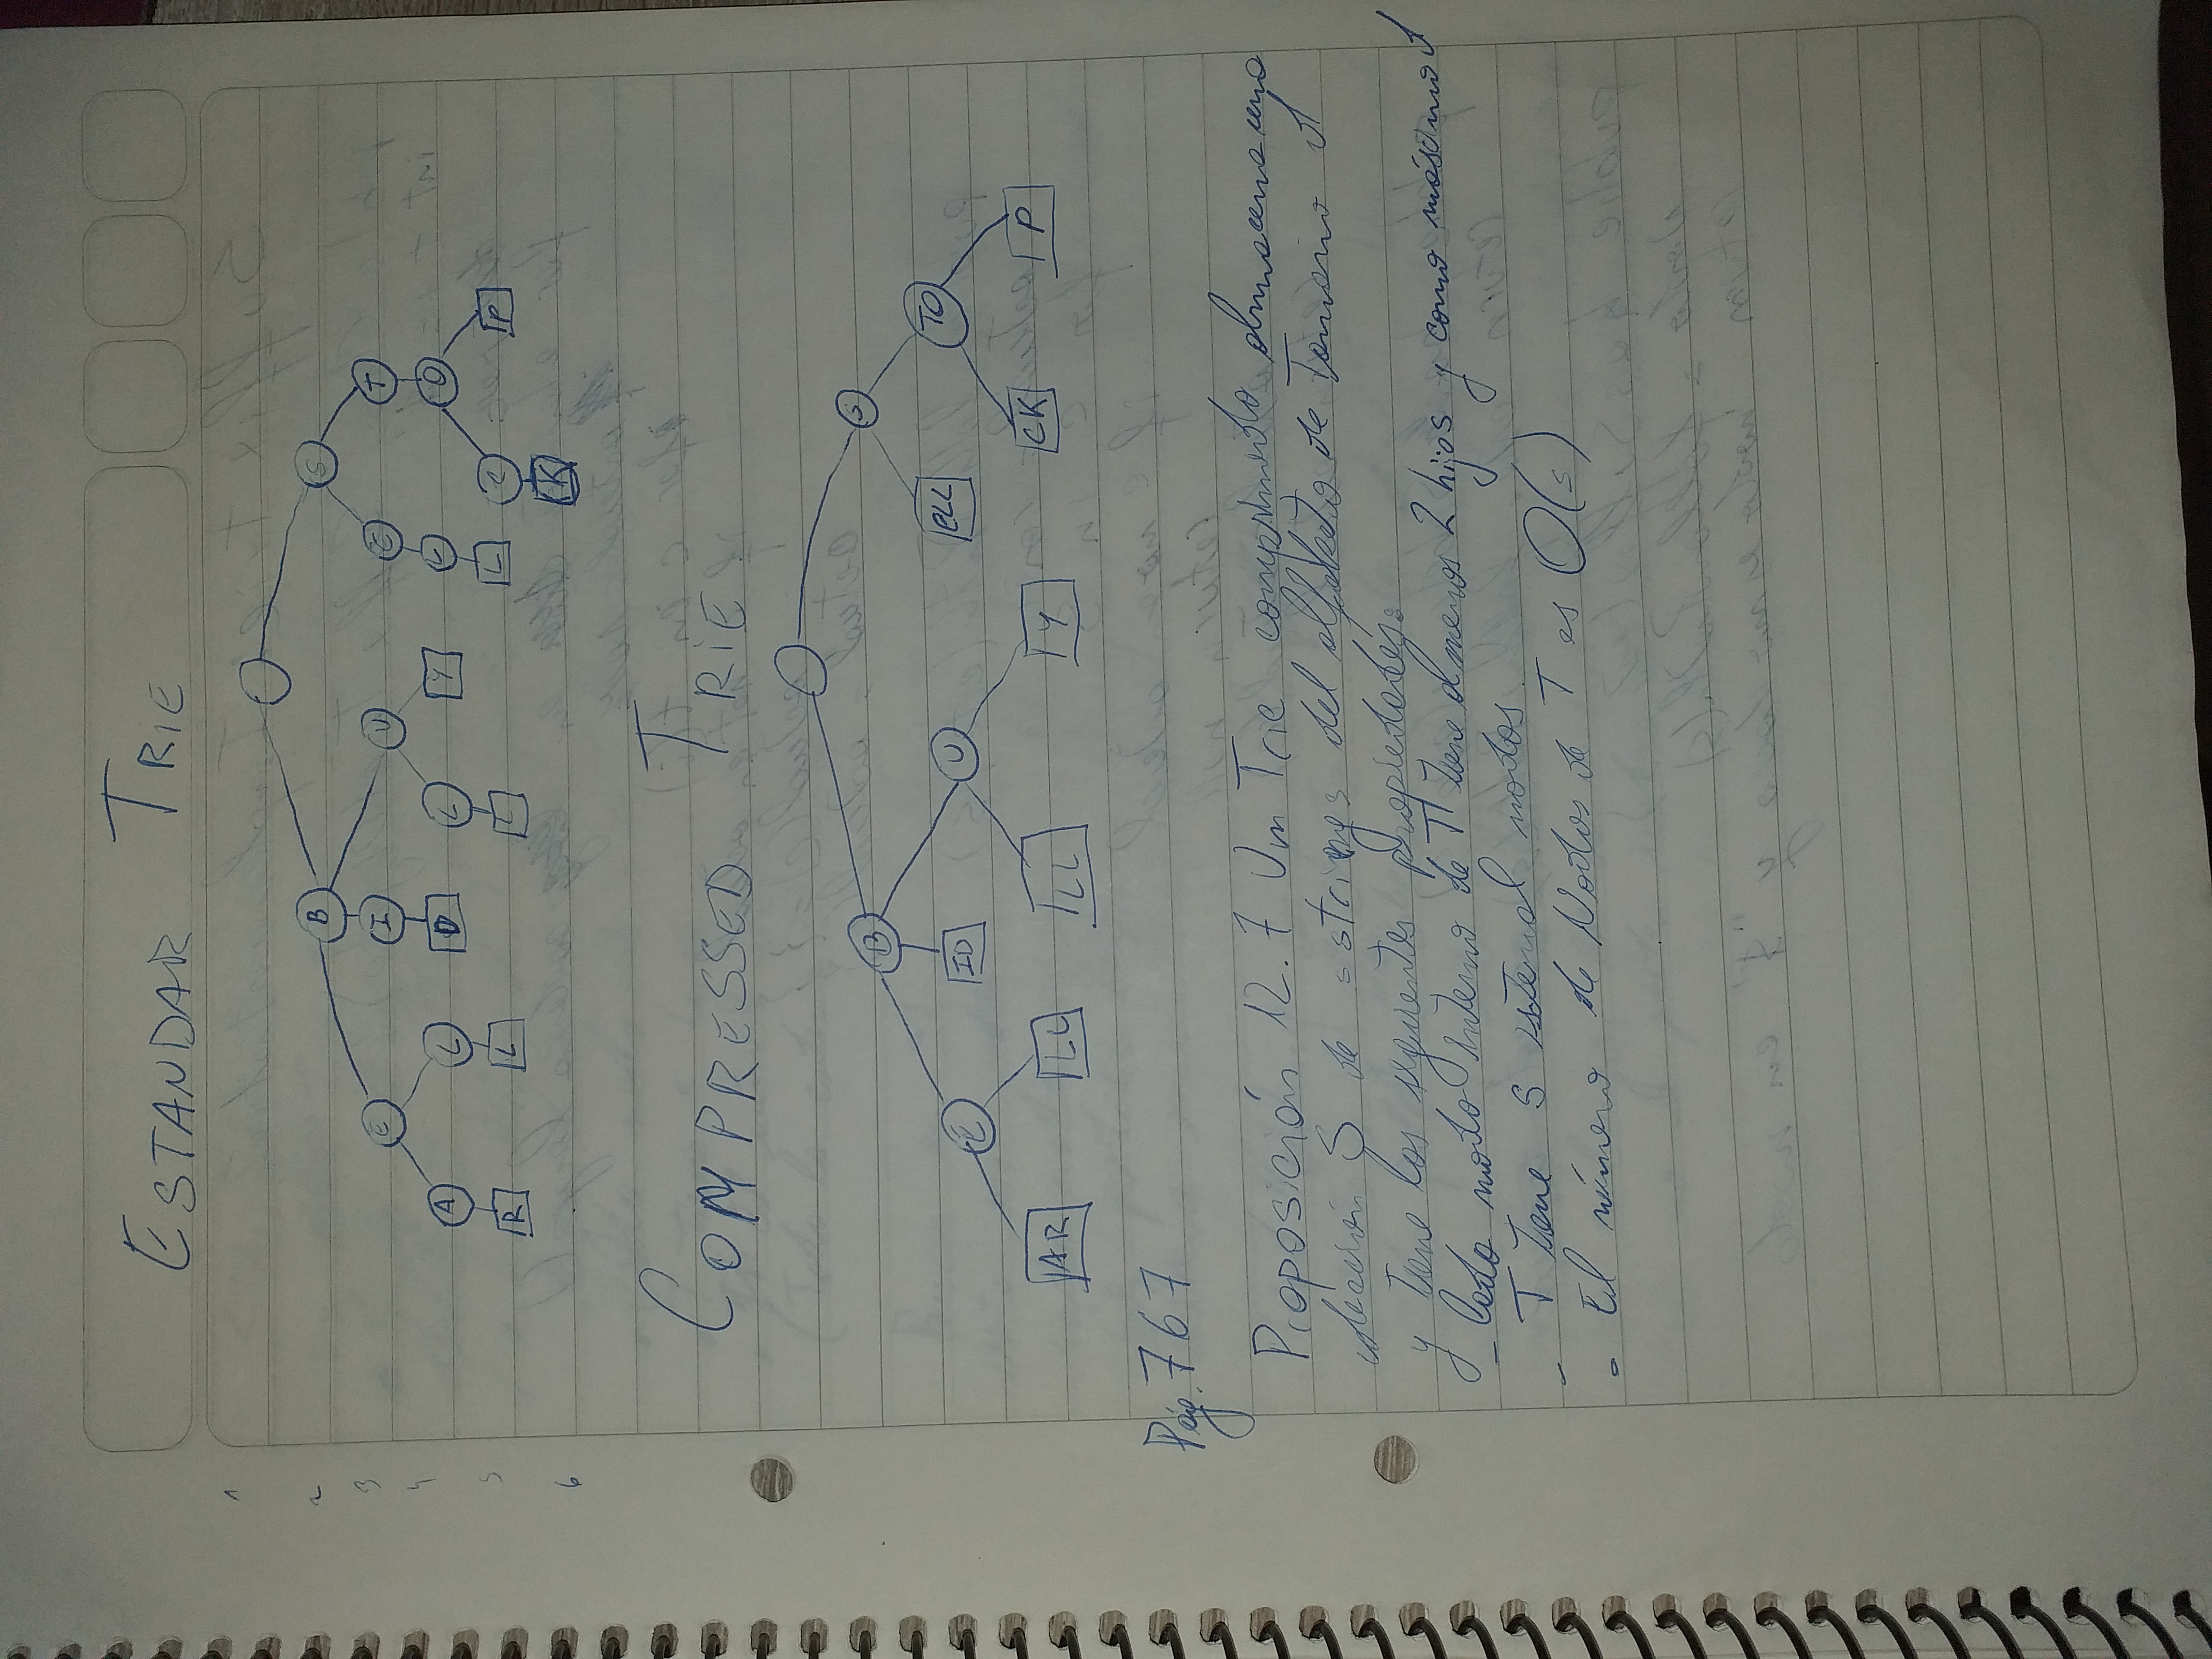 ESTANDAR TRIE
1
2 B S
3 E I U E T
4 A L D L Y L O
5 R L L L C P
6 K
COMPRESSED TRIE
B S
E ID U ELL TO
AR LL LL Y CK P
Pág. 767
Proposición 12.7 Un Trie comprimido almacena una
colección S de s strings del alfabeto de Tamaño d
y tiene las siguientes propiedades:
- Cada nodo interno de T tiene al menos 2 hijos y como máximo d
- T tiene s external nodos.
- El número de Nodos de T es O(s)